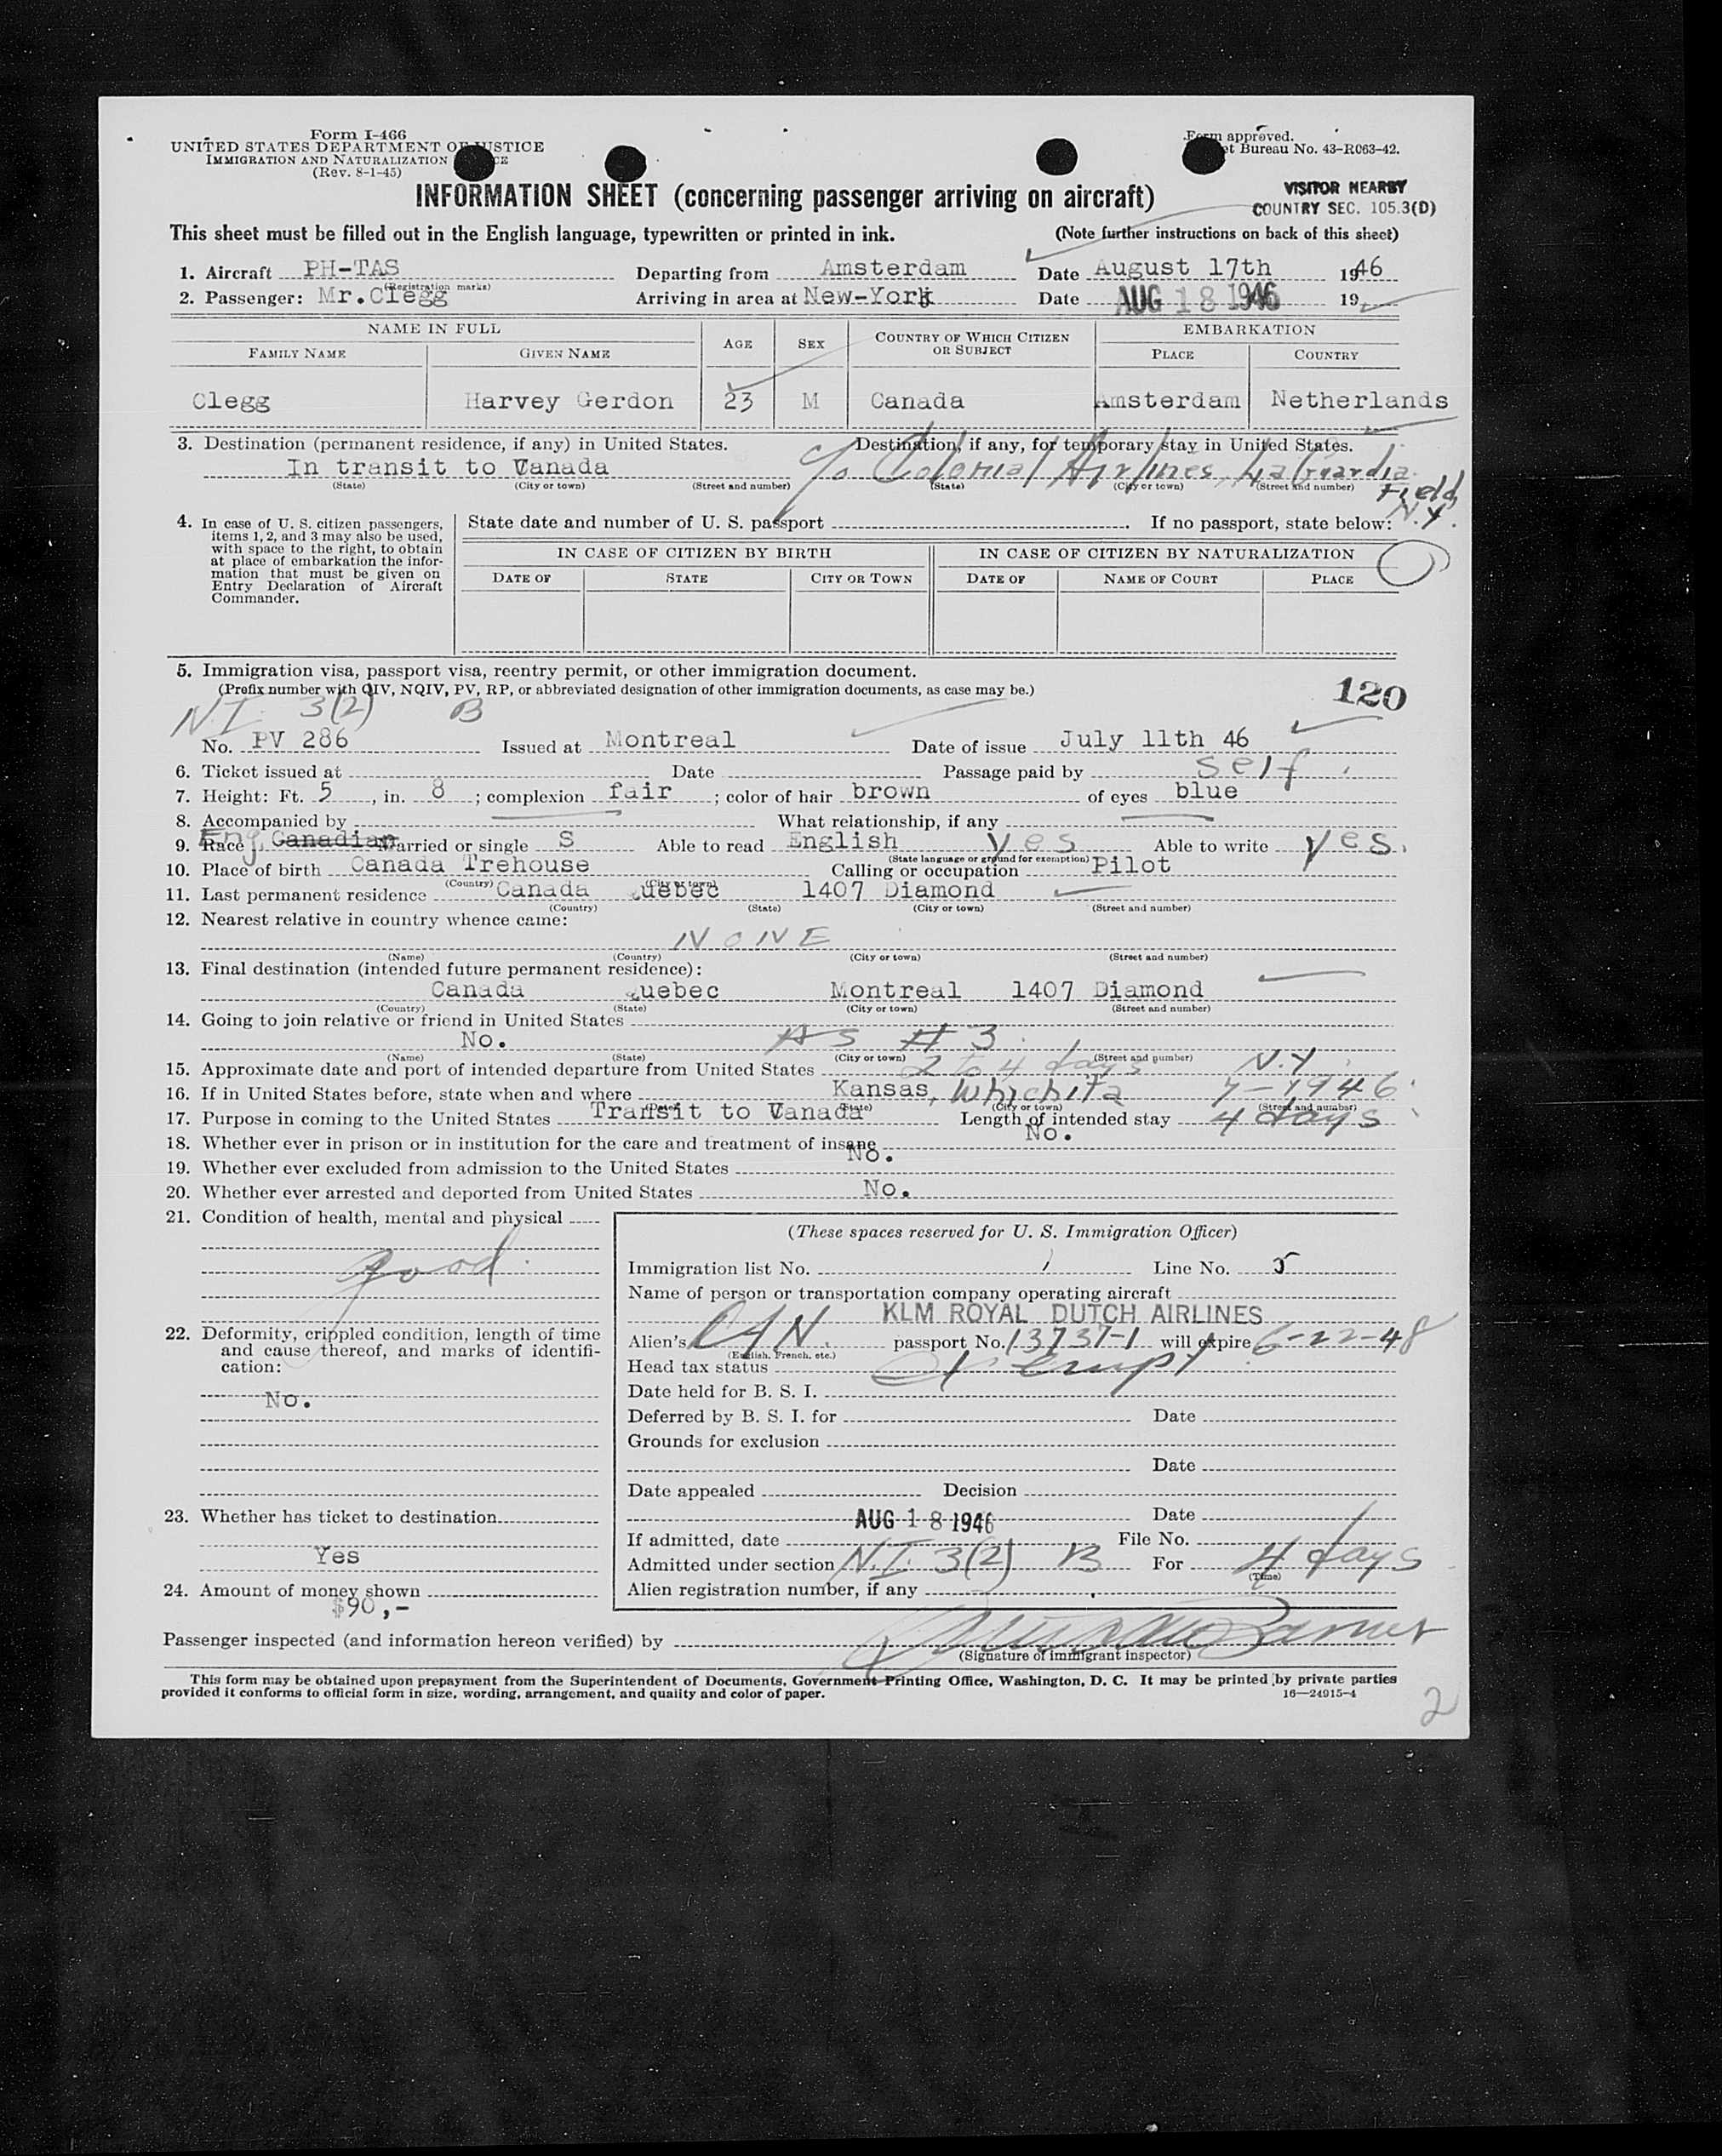 Form I-466
UNITED STATES DEPARTMENT OF JUSTICE
IMMIGRATION AND NATURALIZATION
(Rev. 8-1-45)
Form approved.
Bureau No. 43-R063-42.
INFORMATION SHEET (concerning passenger arriving on aircraft)
VISITOR NEARBY
COUNTRY SEC. 105.3(D)
This sheet must be filled out in the English language, typewritten or printed in ink. (Note further instructions on back of this sheet)
1. Aircraft PH-TAS Departing from Amsterdam Date August 17th 1946
(Registration marks)
2. Passenger: Mr. Clegg Arriving in area at New-York Date AUG 18 1946 19
NAME IN FULL AGE SEX COUNTRY OF WHICH CITIZEN OR SUBJECT EMBARKATION
FAMILY NAME GIVEN NAME PLACE COUNTRY
Clegg Harvey Gerdon 23 M Canada Amsterdam Netherlands
3. Destination (permanent residence, if any) in United States. Destination, if any, for temporary stay in United States.
In transit to Canada c/o Colonial Airlines, LaGuardia Field, N.Y.
(State) (City or town) (Street and number) (State) (City or town) (Street and number)
4. In case of U. S. citizen passengers, items 1, 2, and 3 may also be used, with space to the right, to obtain at place of embarkation the information that must be given on Entry Declaration of Aircraft Commander.
State date and number of U. S. passport . If no passport, state below:
IN CASE OF CITIZEN BY BIRTH IN CASE OF CITIZEN BY NATURALIZATION
DATE OF STATE CITY OR TOWN DATE OF NAME OF COURT PLACE
5. Immigration visa, passport visa, reentry permit, or other immigration document.
(Prefix number with QIV, NQIV, PV, RP, or abbreviated designation of other immigration documents, as case may be.)
120
N.I. 3(2) B
No. PV 286 Issued at Montreal Date of issue July 11th 46
6. Ticket issued at Date Passage paid by Self.
7. Height: Ft. 5, in. 8; complexion fair; color of hair brown of eyes blue
8. Accompanied by What relationship, if any
9. Race Eng. Canadian Married or single S Able to read English yes Able to write yes.
(State language or ground for exemption)
10. Place of birth Canada Trehouse Calling or occupation Pilot
(Country) (City or town)
11. Last permanent residence Canada Quebec 1407 Diamond
(Country) (State) (City or town) (Street and number)
12. Nearest relative in country whence came:
NONE
(Name) (Country) (City or town) (Street and number)
13. Final destination (intended future permanent residence):
Canada Quebec Montreal 1407 Diamond
(Country) (State) (City or town) (Street and number)
14. Going to join relative or friend in United States
No. AS # 3.
(Name) (State) (City or town) (Street and number)
15. Approximate date and port of intended departure from United States 2 to 4 days N.Y.
16. If in United States before, state when and where Kansas, Whichita 7-1946
(Date) (State) (City or town) (Street and number)
17. Purpose in coming to the United States Transit to Canada Length of intended stay 4 days
18. Whether ever in prison or in institution for the care and treatment of insane No.
19. Whether ever excluded from admission to the United States No.
20. Whether ever arrested and deported from United States No.
21. Condition of health, mental and physical
good
22. Deformity, crippled condition, length of time and cause thereof, and marks of identification:
No.
23. Whether has ticket to destination
Yes
24. Amount of money shown
$90,-
(These spaces reserved for U. S. Immigration Officer)
Immigration list No. 1 Line No. 5
Name of person or transportation company operating aircraft
KLM ROYAL DUTCH AIRLINES
Alien's CAN. passport No. 13737-1 will expire 6-22-48
(English, French, etc.)
Head tax status Exempt
Date held for B. S. I.
Deferred by B. S. I. for Date
Grounds for exclusion
Date
Date appealed Decision
Date
AUG 18 1946
If admitted, date File No.
Admitted under section N.I. 3(2) B For 4 days
(Time)
Alien registration number, if any
Passenger inspected (and information hereon verified) by
(Signature of immigrant inspector)
This form may be obtained upon prepayment from the Superintendent of Documents, Government Printing Office, Washington, D. C. It may be printed by private parties
provided it conforms to official form in size, wording, arrangement, and quality and color of paper. 16—24915-4
2